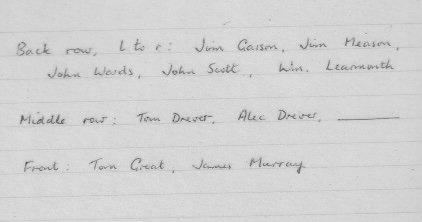 Back row, L to r: Jim Casson, Jim Meason,
John Wards, John Scott, Wm. Learmonth
Middle row: Tom Drever, Alec Drever, ______
Front: Tom Groat, James Murray